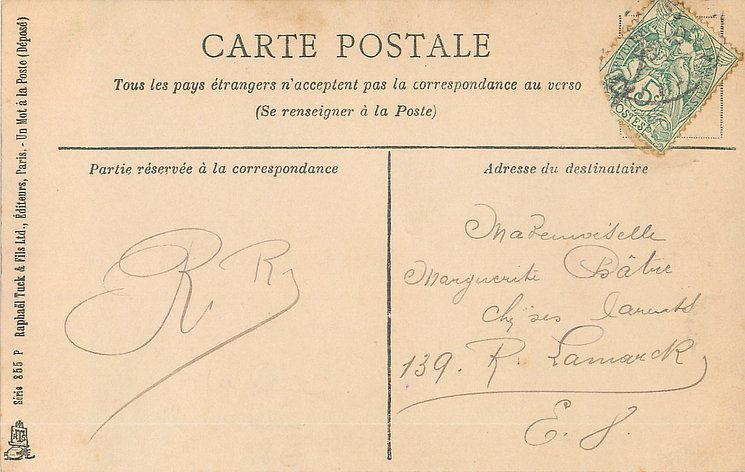 CARTE POSTALE
Tous les pays étrangers n'acceptent pas la correspondance au verso
(Se renseigner à la Poste)
Partie réservée à la correspondance
R. R.
Adresse du destinataire
Mademoiselle
Marguerite Bâtre
chz ses Parents
139. R. Lamarck
E. V.
Série 855 P Raphaël Tuck & Fils Ltd., Éditeurs, Paris. - Un Mot à la Poste (Déposé)
5
POSTES